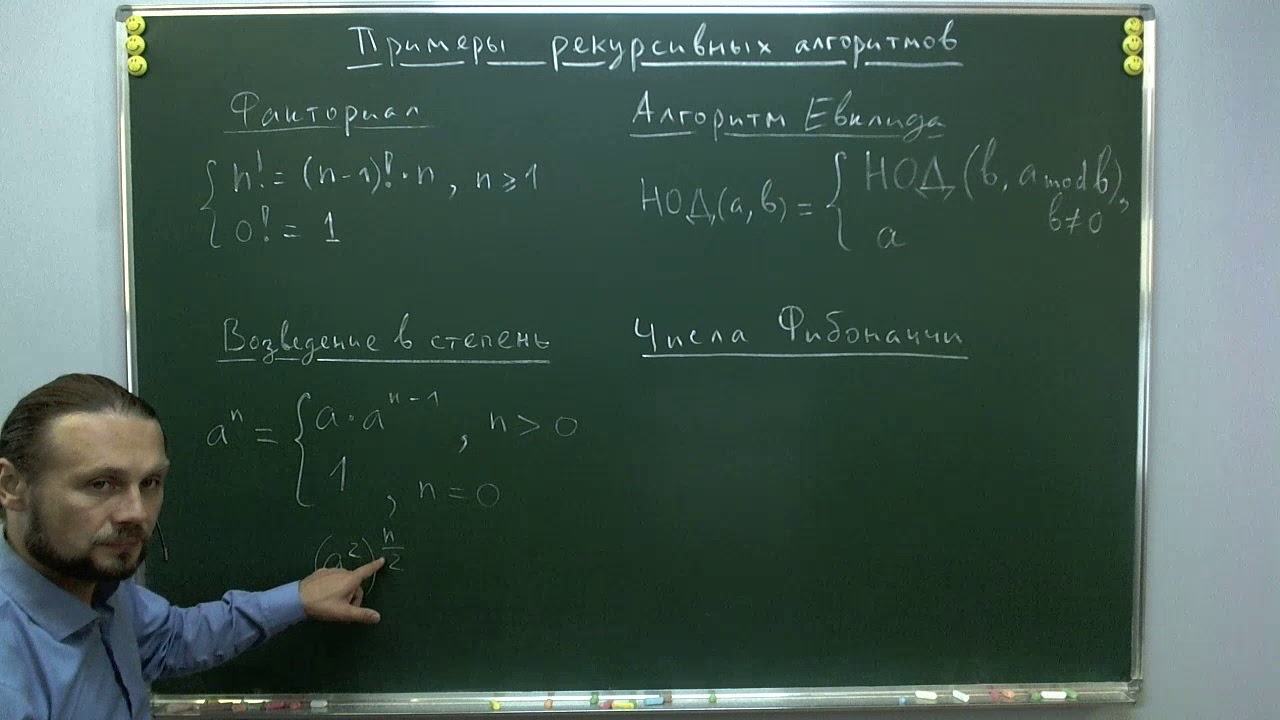 Примеры рекурсивных алгоритмов
Факториал
n! = (n-1)! · n , n ≥ 1
0! = 1
Алгоритм Евклида
НОД(a, b) = { НОД(b, a mod b),
b ≠ 0
a
Возведение в степень
aⁿ = { a · aⁿ⁻¹ , n > 0
1 , n = 0
(a²)^(n/2)
Числа Фибоначчи